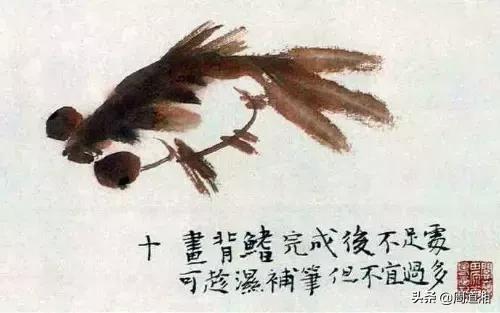 十 畫背鰭完成後不足處
可趁濕補筆但不宜過多
头条 @周道相